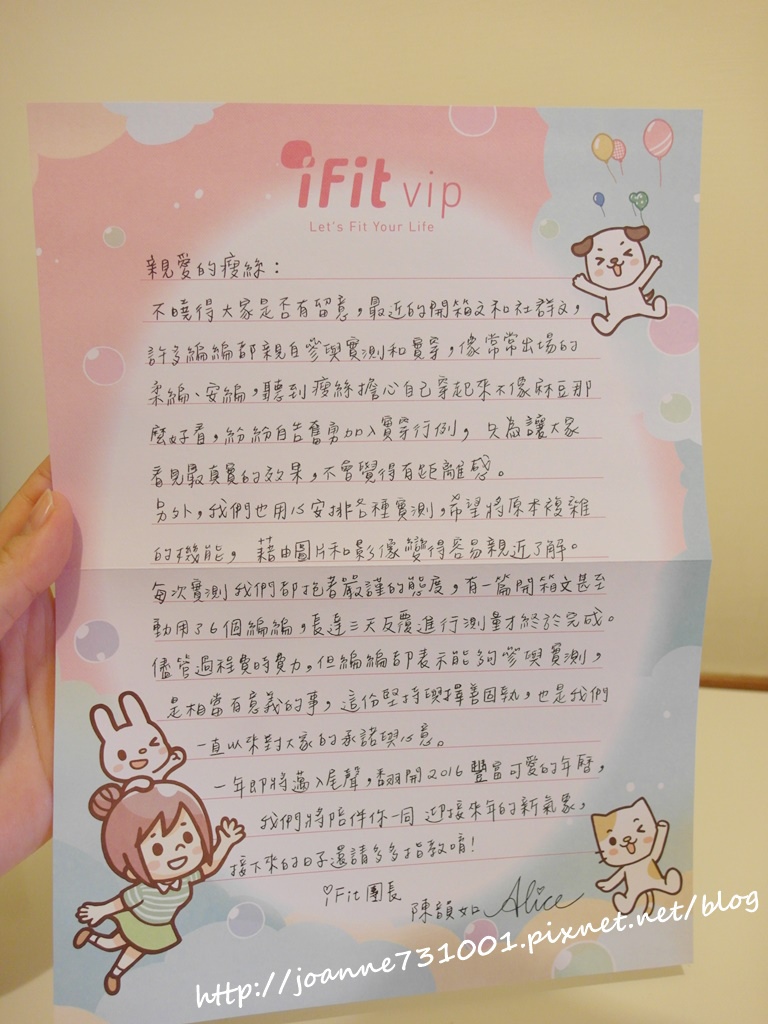 iFit vip
Let's Fit Your Life
親愛的瘦絲：
不曉得大家是否有留意，最近的開箱文和社群文，
許多編編都親自參與實測和實穿，像常常出場的
柔編、安編，聽到瘦絲擔心自己穿起來不像麻豆那
麼好看，紛紛自告奮勇加入實穿行列，只為讓大家
看見最真實的效果，不會覺得有距離感。
另外，我們也用心安排各種實測，希望將原本複雜
的機能，藉由圖片和影像變得容易親近了解。
每次實測我們都抱著嚴謹的態度，有一篇開箱文甚至
動用了6個編編，長達三天反覆進行測量才終於完成。
儘管過程費時費力，但編編都表示能夠參與實測，
是相當有意義的事，這份堅持與擇善固執，也是我們
一直以來對大家的承諾與心意。
一年即將邁入尾聲，翻開2016豐富可愛的年曆，
我們將陪伴你一同迎接來年的新氣象，
接下來的日子還請多多指教唷！
iFit團長
陳韻如 Alice
http://joanne731001.pixnet.net/blog